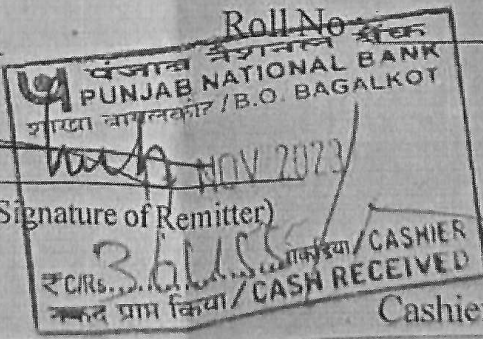 Roll No
पंजाब नैशनल बैंक
PUNJAB NATIONAL BANK
शाखा बागलकोट / B.O. BAGALKOT
NOV 2023
Signature of Remitter)
₹C/Rs.
/ CASHIER
नकद प्राप्त किया / CASH RECEIVED
Cashier